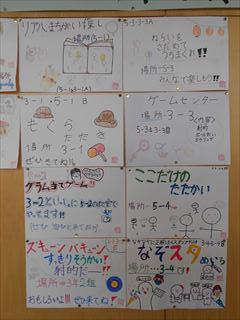 リアルまちがい探し
場所(5-1)
(5-1)(3-1A)
5-3・3-3A
ねらいを
さだめて
うちまくれ!!
場所…5-3
みんなで楽しもう!!
3-1・5-1 B
もぐら
たたき
場所 3-1
ぜひきてね!!
ゲームセンター
場所…3-3(内容)
5-3&3-3B
射的
ボーリング
グラム当てゲーム!!
3-2といっしょに5-2の教室で
やってます!!
ここだけの
たたかい
場所…5-4
スキューンバキューンと
すっきりそうかい!
射的だー!!
場所⇒3年2組
おもしろいよ!!
ぜひ来てね!
なぞスタ
めいろ
場所…3-4です!!